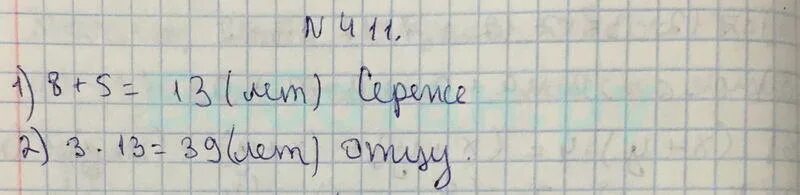 N 411.
1) 8 + 5 = 13 (лет) Сереже
2) 3 · 13 = 39 (лет) отцу.